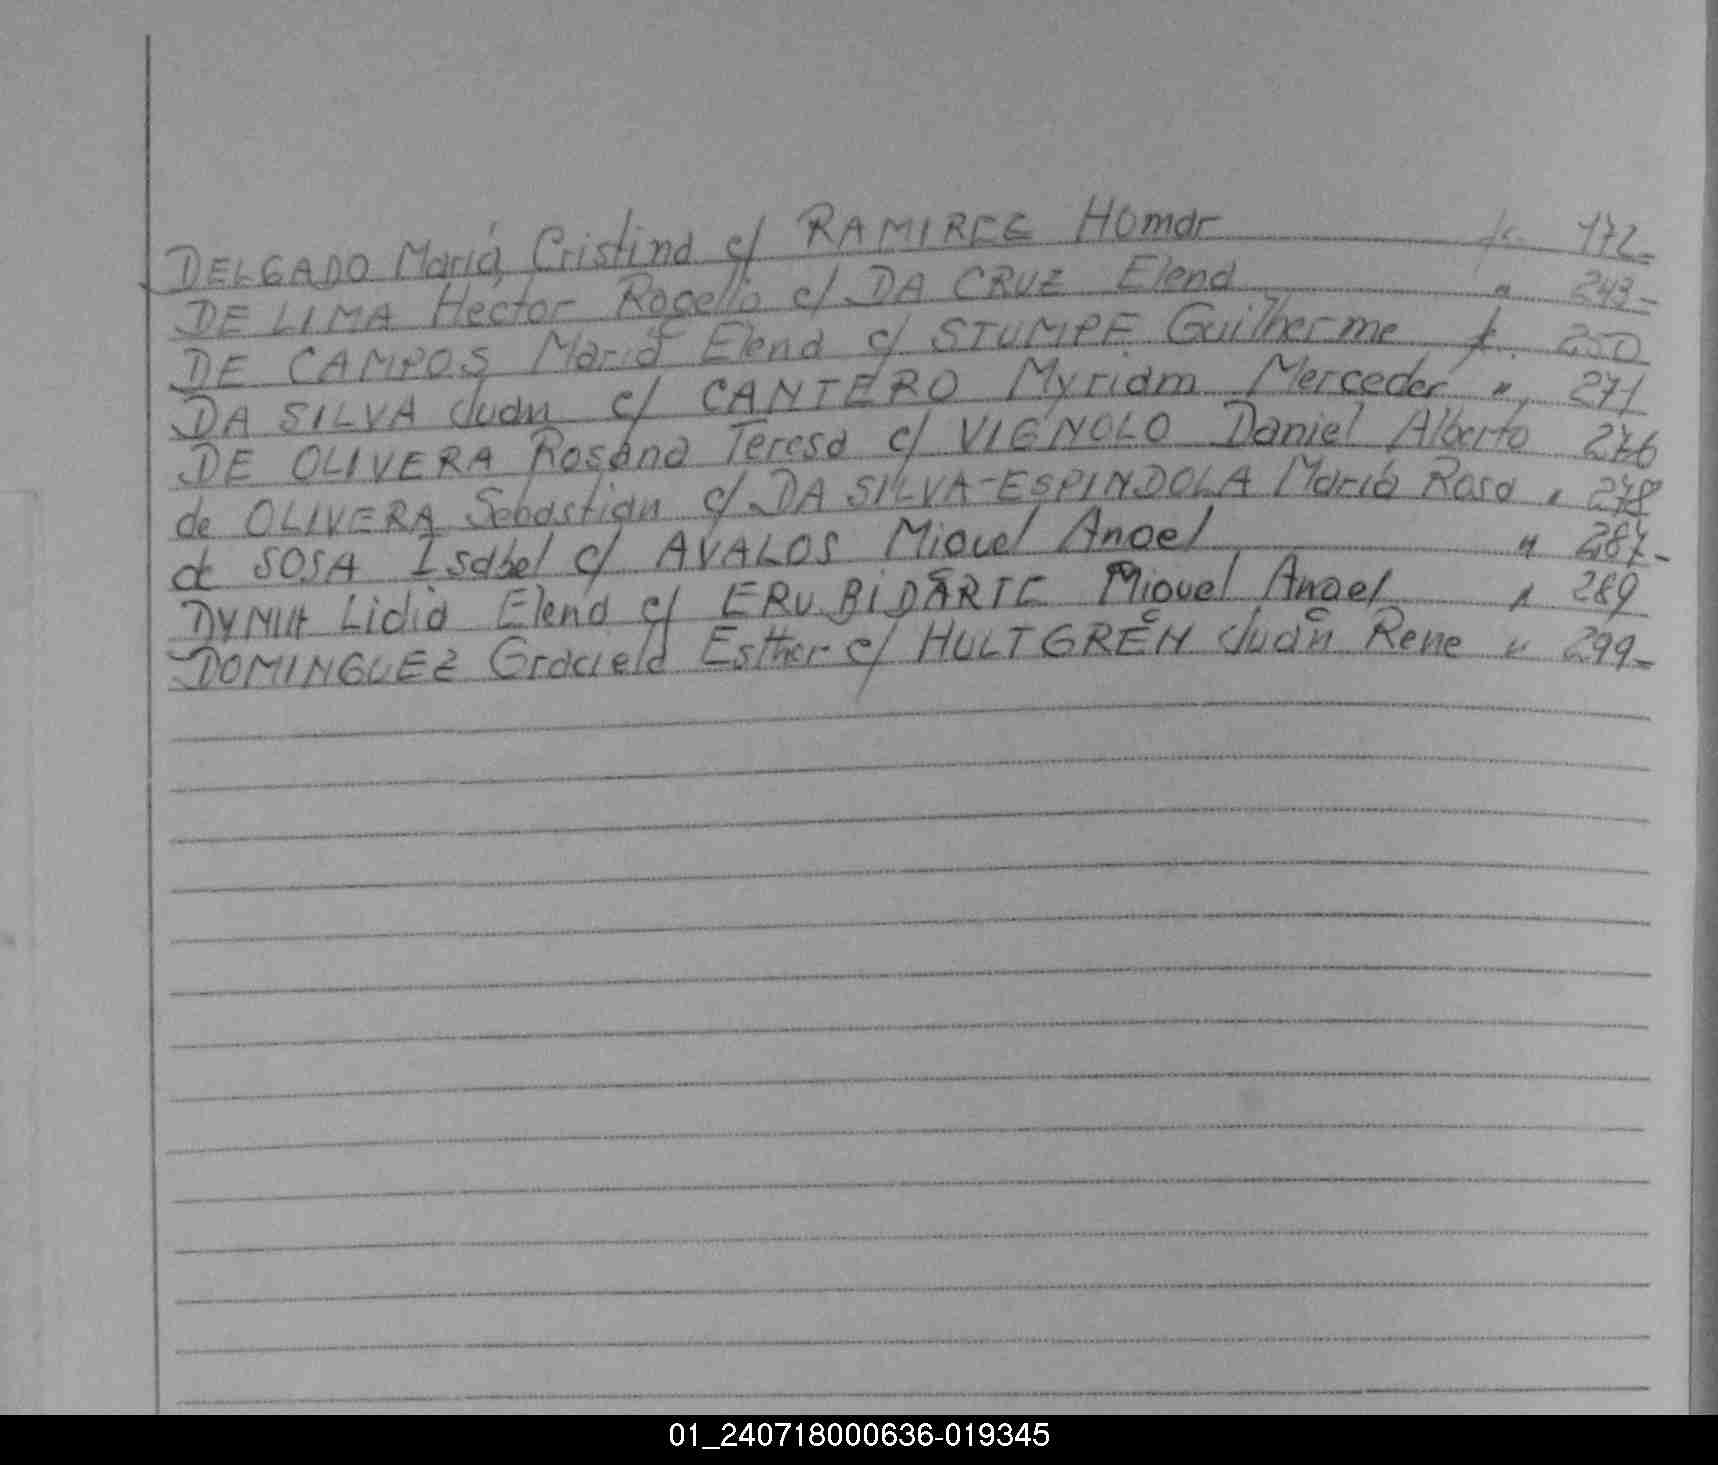 DELGADO María Cristina c/ RAMIREZ Homar fs. 172-
DE LIMA Hector Rogelio c/ DA CRUZ Elena " 243-
DE CAMPOS María Elena c/ STUMPF Guilherme f. 250
DA SILVA Juan c/ CANTERO Myriam Mercedes " 271
DE OLIVERA Rosana Teresa c/ VIGNOLO Daniel Alberto 276
de OLIVERA Sebastian c/ DA SILVA-ESPINDOLA María Rosa " 278
de SOSA Isabel c/ AVALOS Miguel Angel " 287-
Lidia Elena c/ ERUBIDARTE Miguel Angel " 289
DOMINGUEZ Graciela Esther c/ HULTGREN Juan Rene " 299-
01_240718000636-019345